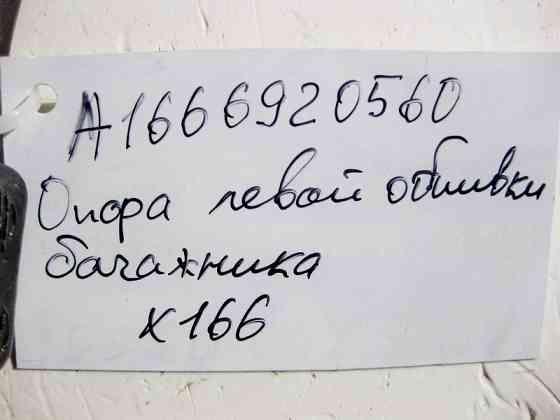 А1666920560
Опора левой обшивки
багажника
X166